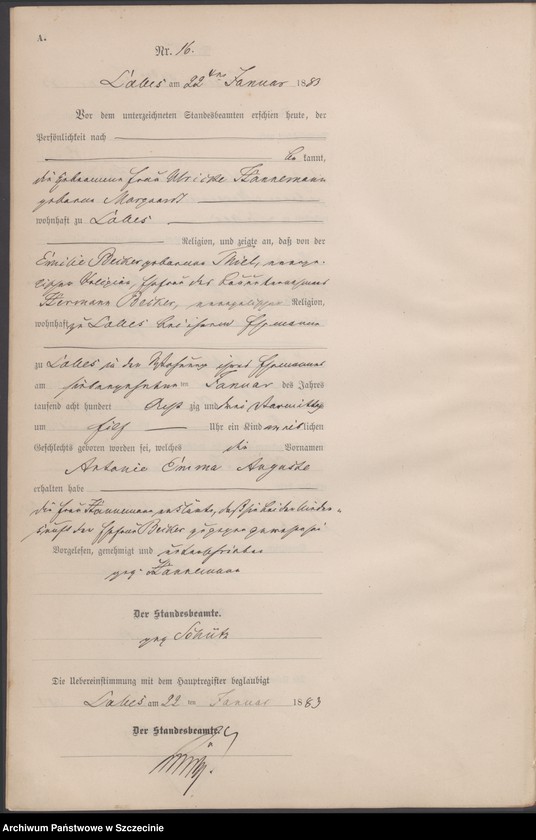 A.
Nr. 16.
Labes am 22ten Januar 1883
Vor dem unterzeichneten Standesbeamten erschien heute, der
Persönlichkeit nach
be kannt,
die Hebamme Frau Ulricke Hannemann
geborene Marquardt
wohnhaft zu Labes
Religion, und zeigte an, daß von der
Emilie Becker geborenen Thiel, evange-
lischer Religion, Ehefrau des
Herrmann Becker, evangelischer Religion,
wohnhaft zu Labes bei ihrem Ehemanne
zu Labes in der Wohnung ihres Ehemannes
am siebenzehnten ten Januar des Jahres
tausend acht hundert acht zig und drei Vormittags
um Uhr ein Kind weib lichen
Geschlechts geboren worden sei, welches die Vornamen
Antonie Emma Auguste
erhalten habe
die Frau Hannemann erklärte, daß sie bei der Nieder-
kunft der Ehefrau Becker zugegen gewesen sei
Vorgelesen, genehmigt und unterschrieben
gez. Hannemann
Der Standesbeamte.
gez Schütz
Die Uebereinstimmung mit dem Hauptregister beglaubigt
Labes am 22 ten Januar 1883
Der Standesbeamte.
Archiwum Państwowe w Szczecinie